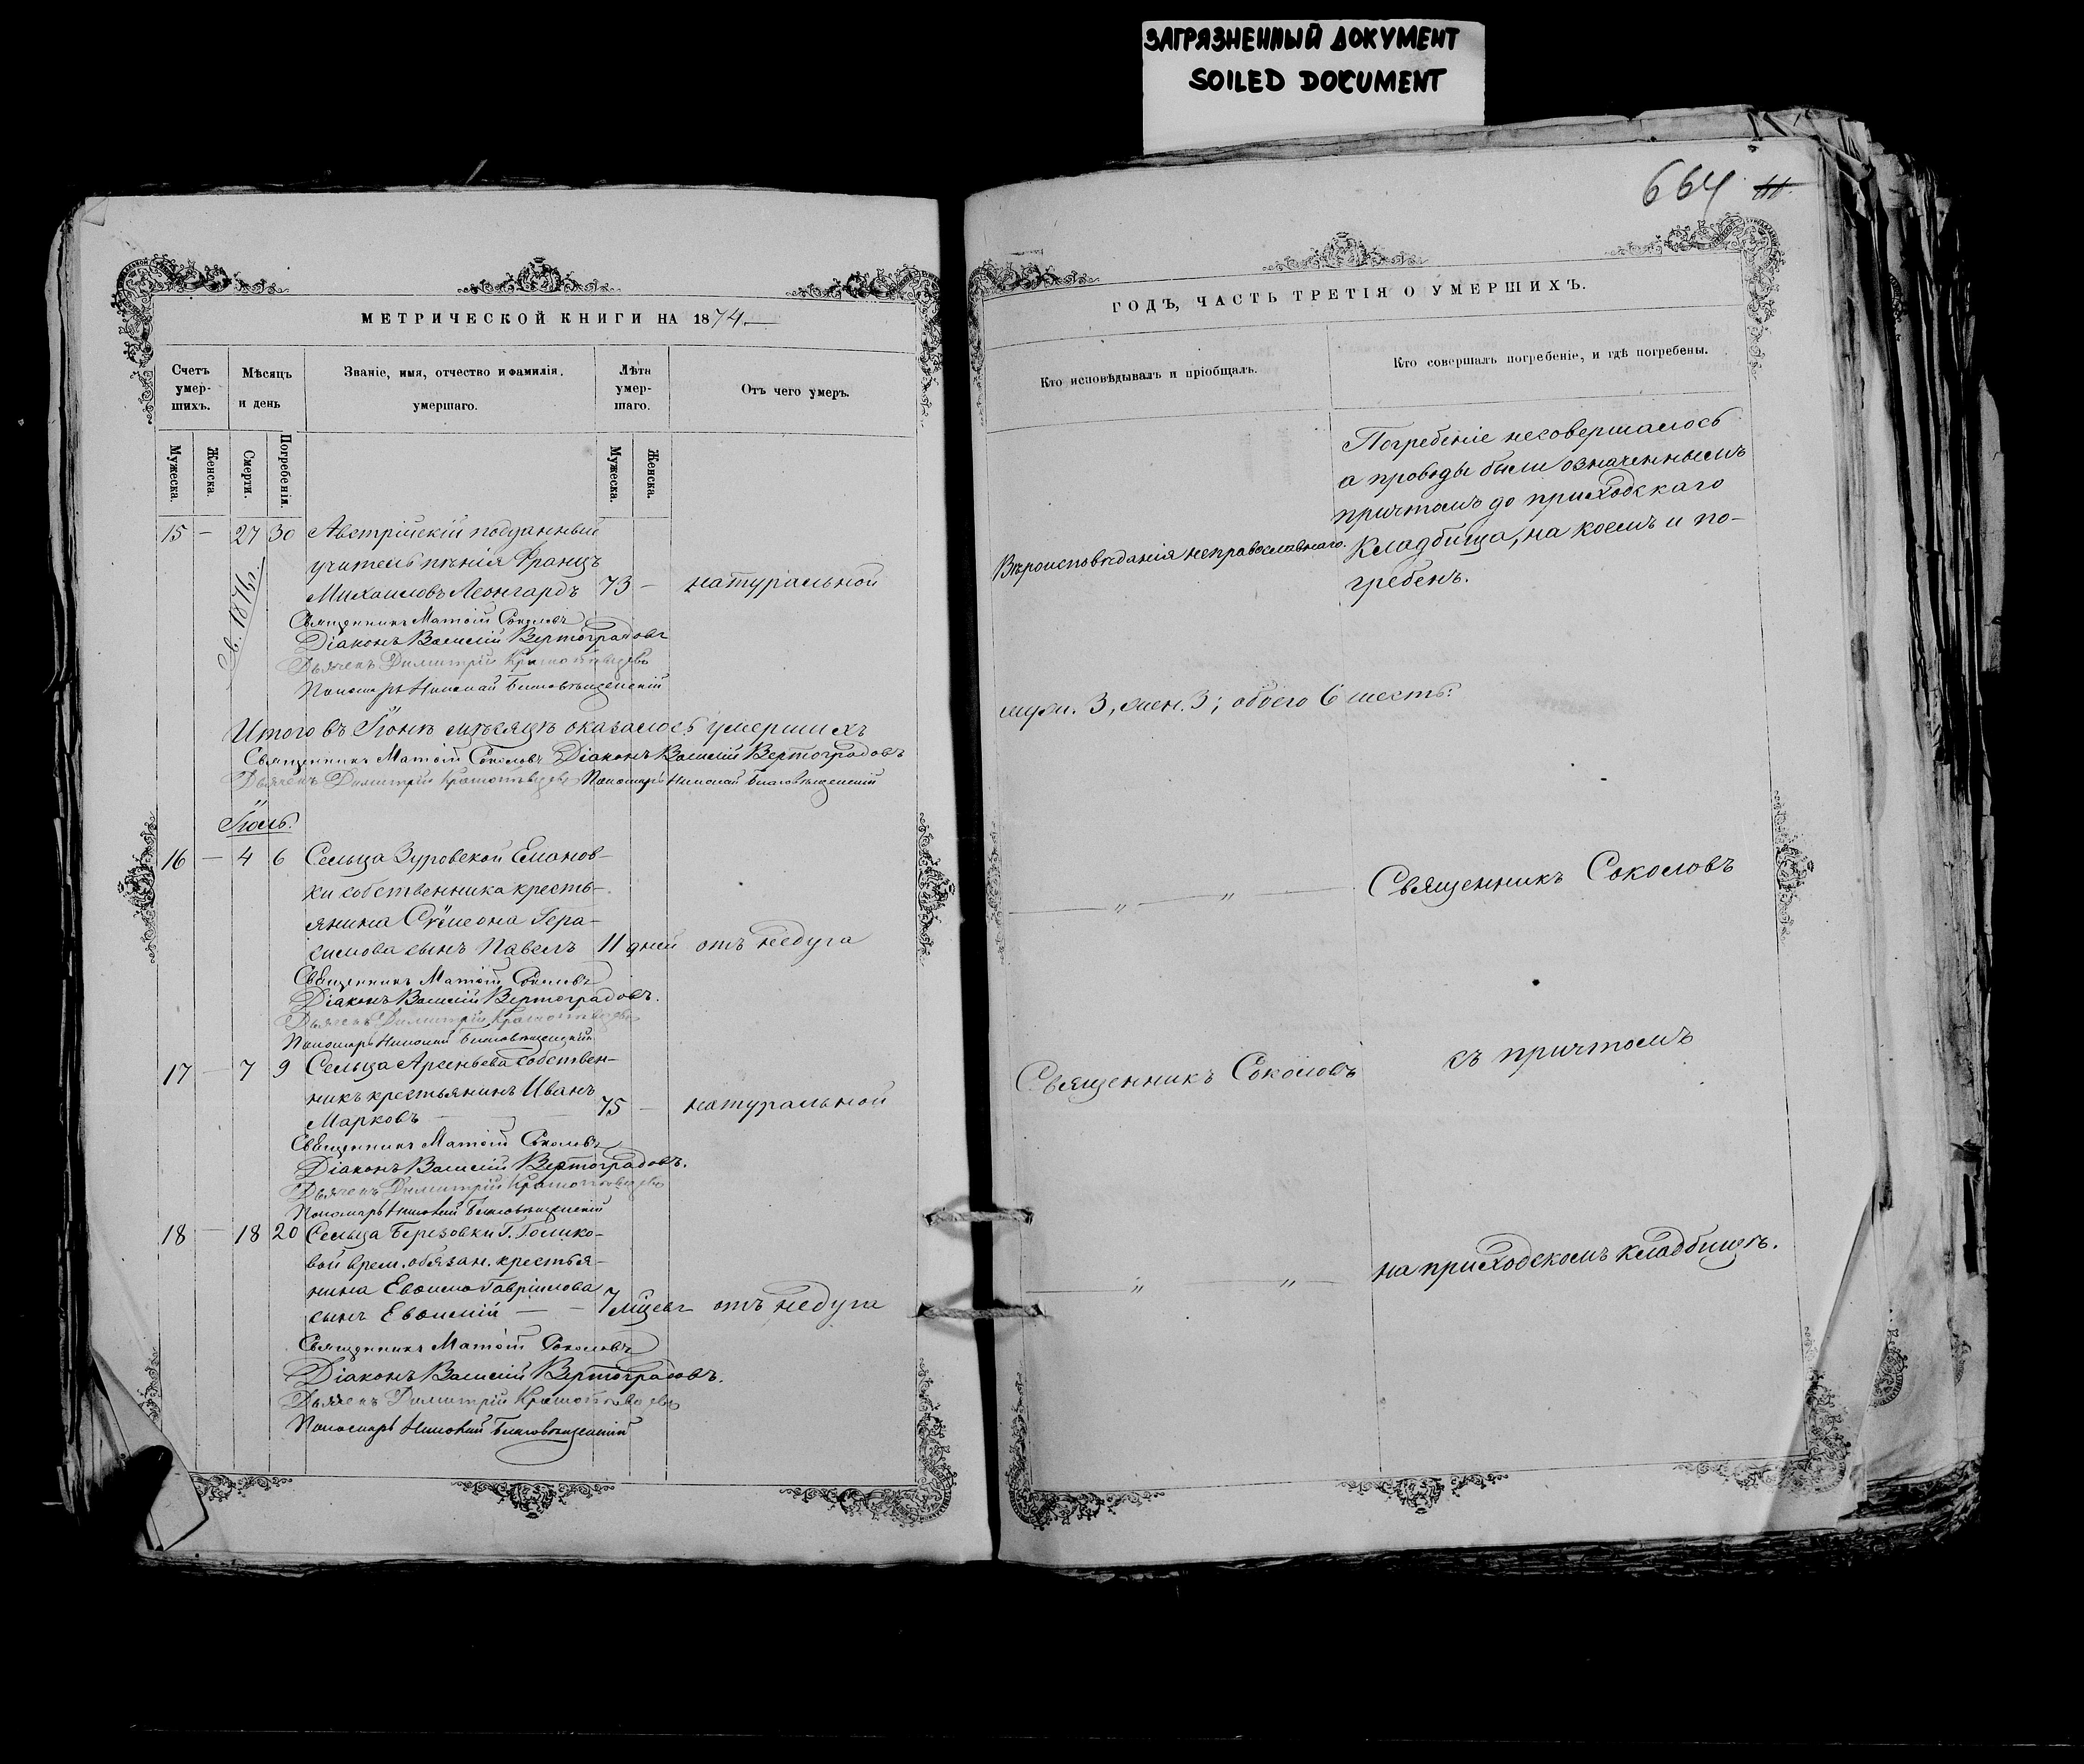 ЗАГРЯЗНЕННЫЙ ДОКУМЕНТ
SOILED DOCUMENT
664
МЕТРИЧЕСКОЙ КНИГИ НА 1874
Счетъ умер-шихъ.
Мѣсяцъ и день
Званіе, имя, отчество и фамилія.
умершаго.
Лѣта умер-шаго.
Отъ чего умеръ.
Мужеска.
Женска.
Смерти.
Погребенія.
Мужеска.
Женска.
15 — 27 30 Австрійскій подданный
учитель пѣнія Францъ
Михаиловъ Леонгардъ 73 — натуральной
Священникъ Матѳій Соколовъ
Діаконъ Василій Вертоградовъ
Дьячекъ Димитрій
Пономарь Николай Благовѣщенскій
Итого въ Іюнѣ мѣсяцѣ оказалось умершихъ
Священникъ Матѳій Соколовъ Діаконъ Василій Вертоградовъ
Дьячекъ Димитрій Пономарь Николай Благовѣщенскій
Іюль.
16 — 4 6 Сельца Зуровской
ки собственника кресть-
янина Сѵмеона Гера-
симова сынъ Павелъ 11 дней отъ недуга
Священникъ Матѳій Соколовъ
Діаконъ Василій Вертоградовъ.
Дьячекъ Димитрій
Пономарь Николай Благовѣщенскій
17 — 7 9 Сельца Арсеньева собствен-
никъ крестьянинъ Иванъ
Марковъ — 75 — натуральной
Священникъ Матѳій Соколовъ
Діаконъ Василій Вертоградовъ.
Дьячекъ Димитрій
Пономарь Николай Благовѣщенскій
18 — 18 20 Сельца Березовки Г. Голико-
вой врем. обязан. крестья-
нина Евѳима Гавріилова
сынъ Евѳимій — — 7 отъ недуга
Священникъ Матѳій Соколовъ
Діаконъ Василій Вертоградовъ.
Дьячекъ Димитрій
Пономарь Николай Благовѣщенскій
ГОДЪ, ЧАСТЬ ТРЕТІЯ О УМЕРШИХЪ.
Кто исповѣдывалъ и пріобщалъ.
Кто совершалъ погребеніе, и гдѣ погребены.
Погребеніе несовершалось
а проводы были означеннымъ
причтомъ до приходскаго
Вѣроисповѣданія неправославнаго. Кладбища, на коемъ и по-
гребенъ.
муж. 3, жен. 3; обоего 6 шесть:
— „ — „ — Священникъ Соколовъ
Священникъ Соколовъ съ причтомъ
— „ — „ — на приходскомъ кладбищѣ.